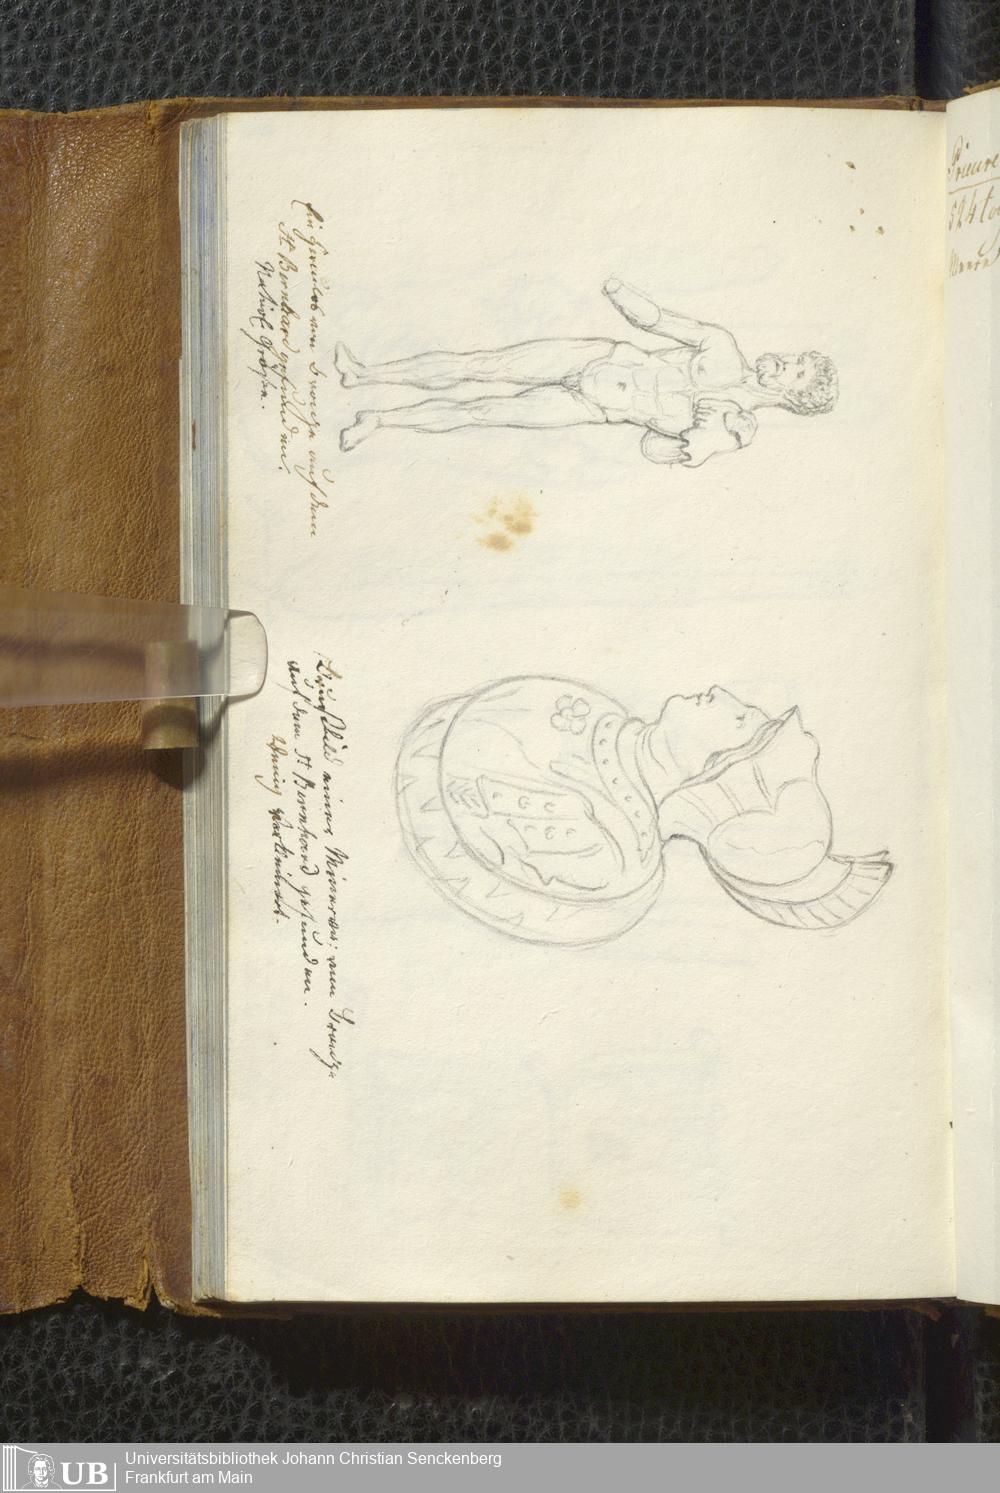 Ein Hercules von Bronze auf dem
St Bernhard gefunden.
Natürl. Grösse.
Brustbild einer Minerva; von Bronze
auf dem St Bernhard gefunden.
wenig verkleinert.
Prieure
524 to
Universitätsbibliothek Johann Christian Senckenberg
Frankfurt am Main
UB